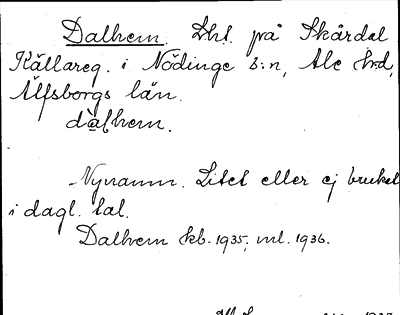 Dalhem. Lht. på Skårdal
Källareg. i Nödinge s:n, Ale h:d,
Älfsborgs län.
dàlhem.
Nynamn. Litet eller ej brukat
i dagl. tal.
Dalhem kb. 1935, ml. 1936.